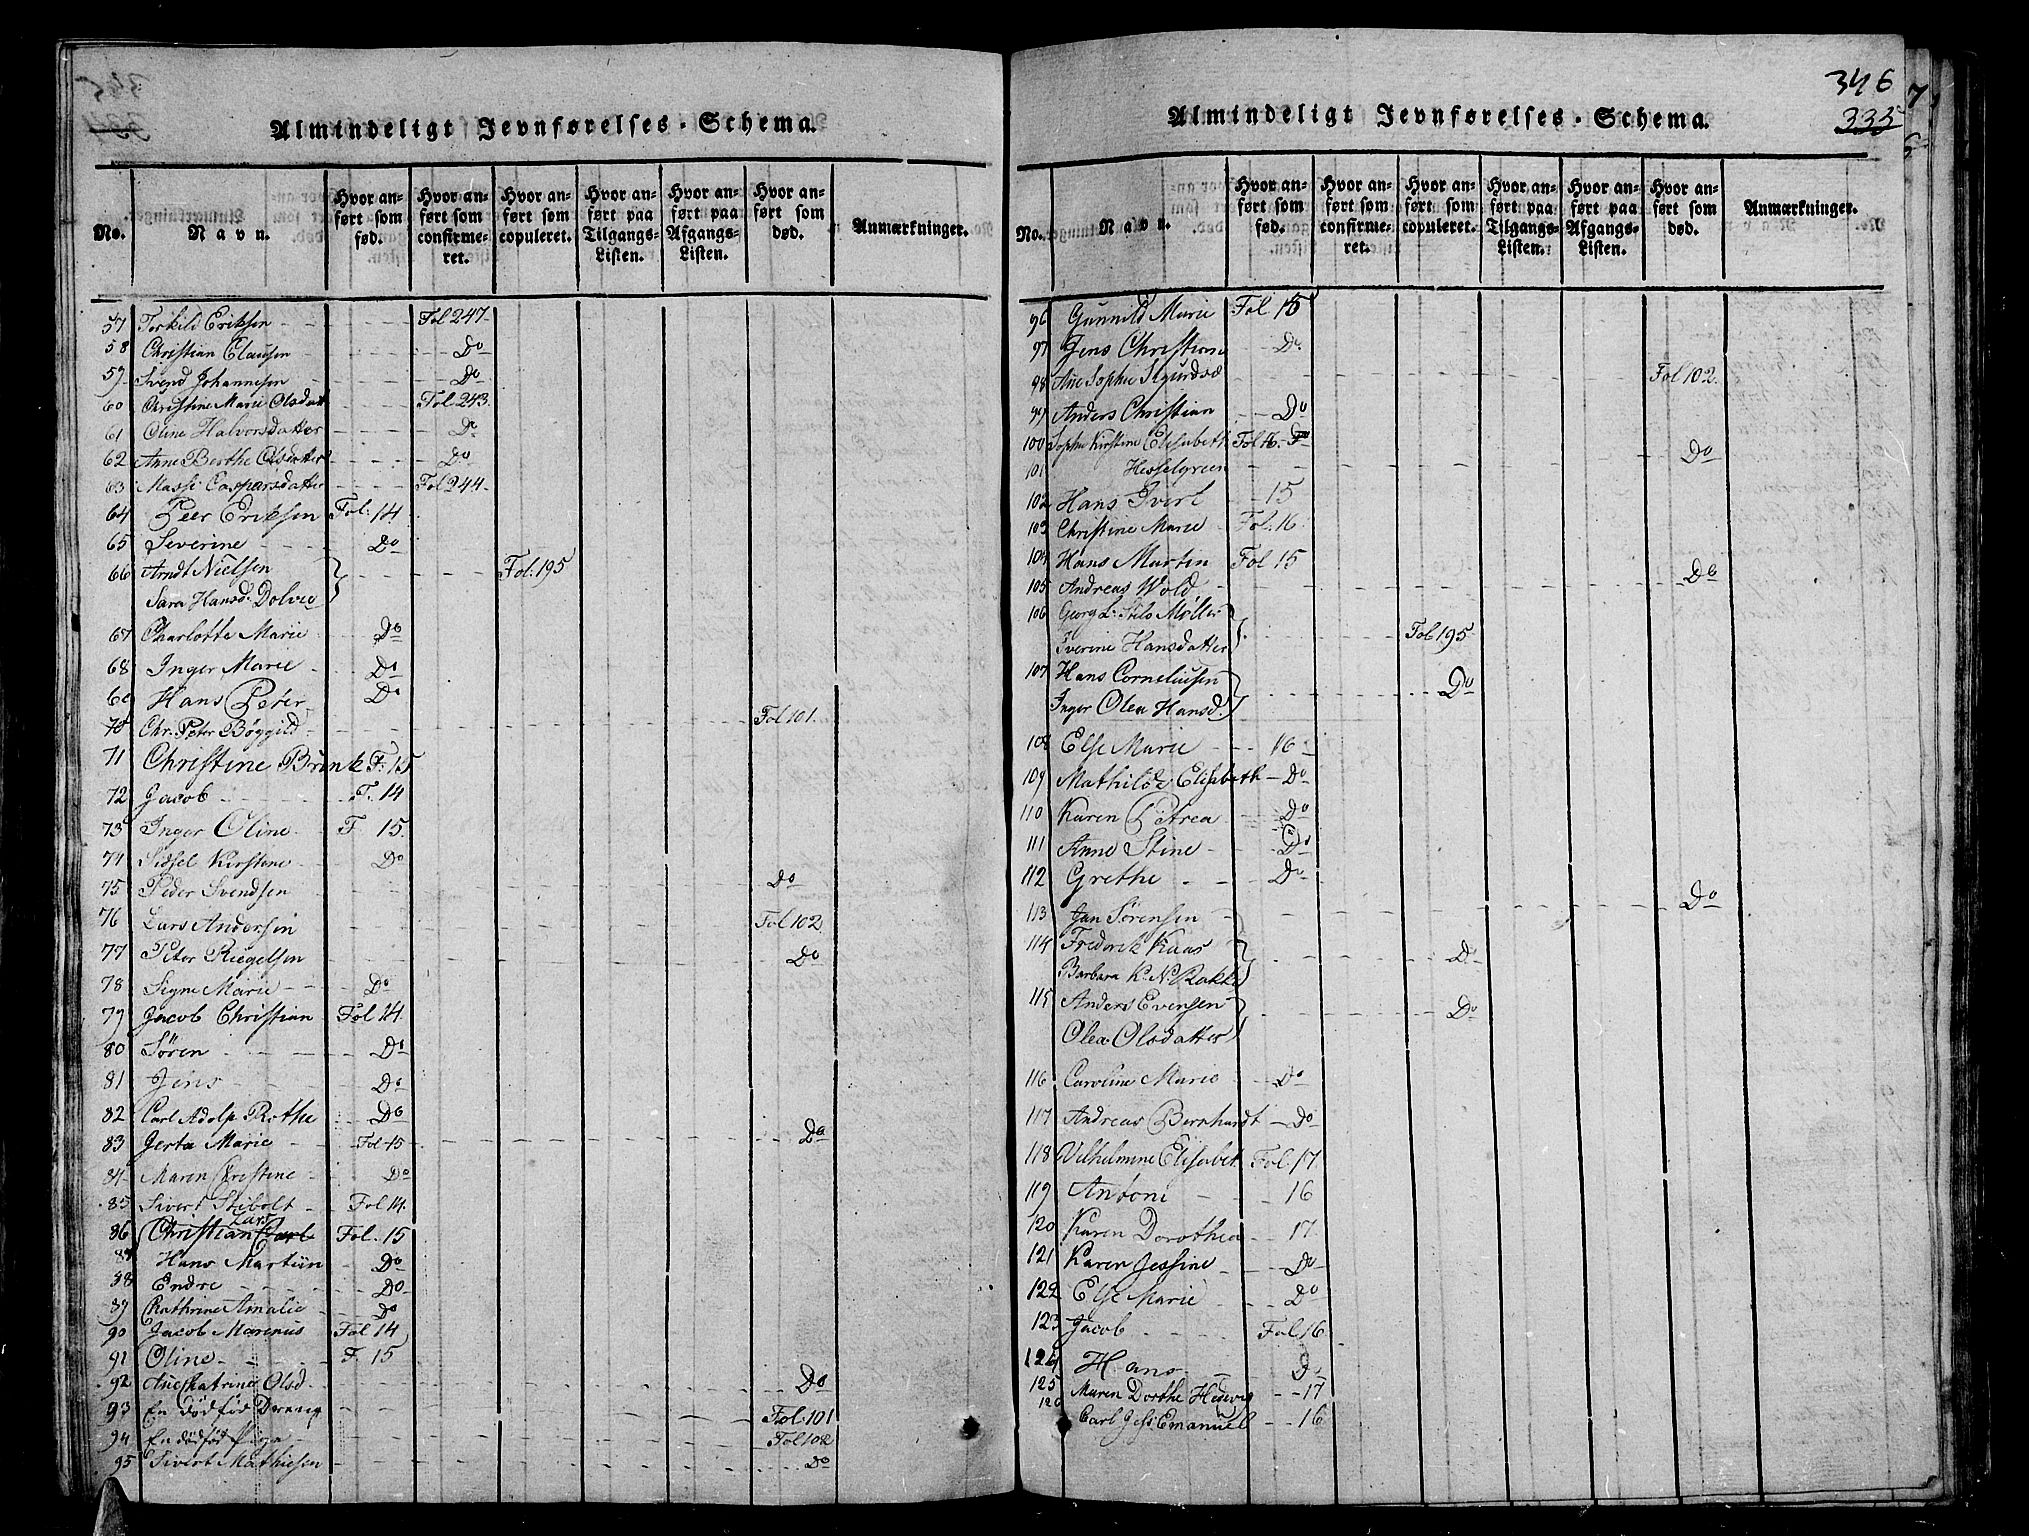 Almindeligt Jevnførelses-Schema.
No.
Navn.
Hvor anført som fød.
Hvor anført som confirmeret.
Hvor anført som copuleret.
Hvor anført paa Tilgangs-Listen.
Hvor anført paa Afgangs-Listen.
Hvor anført som død.
Anmærkninger.
57 Torkild Eriksen Fol 247.
58 Christian Clausen Do
59 Svend Johannesen Do
60 Christine Marie Olsdatt Fol 243.
61 Oline Halvorsdatter Do
62 Anne Berthe Olsdatter Do
63 Massi Caspersdatter Fol 244
64 Peer Eriksen Fol: 14
65 Severine Do
66 Arndt Nielsen Fol. 195
Sara Hansd. Dolvie
67 Charlotte Marie Do
68 Inger Marie Do
69 Hans Peter Do
70 Chr. Peter Bøggild Fol 101.
71 Christine Brink F. 15
72 Jacob F. 14
73 Inger Oline F 15
74 Sidsel Kirstine Do
75 Peder Svendsen Do
76 Lars Andersen Fol 102
77 Peter Riegelsen Do
78 Signe Marie Do
79 Jacob Christian Fol 14.
80 Søren Do
81 Jens Do
82 Carl Adolp Rothe Do
83 Jerta Marie Fol 15 Do
84 Maren Christine Do
85 Sivert Stibolt Fol 14.
Lars
86 Christian Carl Fol. 15
87 Hans Martiin Do
88 Endre Do
89 Cathrine Amalie Do
90 Jacob Marenus Fol 14
91 Oline F. 15
92 Ane Catrine Olsd Do
93 En dødfød Dreng Fol. 101
94 En dødfød Pige Fol 102
95 Sivert Mathiesen Do
346
335
Almindeligt Jevnførelses-Schema.
No.
Navn.
Hvor anført som fød.
Hvor anført som confirmeret.
Hvor anført som copuleret.
Hvor anført paa Tilgangs-Listen.
Hvor anført paa Afgangs-Listen.
Hvor anført som død.
Anmærkninger.
96 Gunnild Marie Fol 15
97 Jens Christian Do
98 Ane Sophie Sigurdsd Fol 102.
99 Anders Christian Do
100 Sophie Kirstine Elisabeth Fol 16
101 Hesselgreen Do
102 Hans Ivert 15
103 Christine Marie Fol. 16
104 Hans Martin Fol 15
105 Andreas Wold Do
106 Georg L. Stils Møller Fol 195
Iverine Hansdatter
107 Hans Corneliusen Do
Inger Olea Hansd.
108 Else Marie 16
109 Mathilde Elisabeth Do
110 Karen Petrea Do
111 Anne Stine Do
112 Grethe Do
113 Jan Sørensen Do
114 Frederik Kaas Do
Barbara K. N. Rokke
115 Anders Evensen Do
Olea Olsdatter
116 Caroline Marie Do
117 Andreas Bernhardt Do
118 Vilhelmine Elisabet Fol. 17.
119 Antoni 16
120 Karen Dorothea 17.
121 Karen Jessine Do
122 Else Marie Do
123 Jacob Fol 16
124 Hans D
125 Maren Dorthe Hedevig 17
126 Carl Jess Emanuel 16